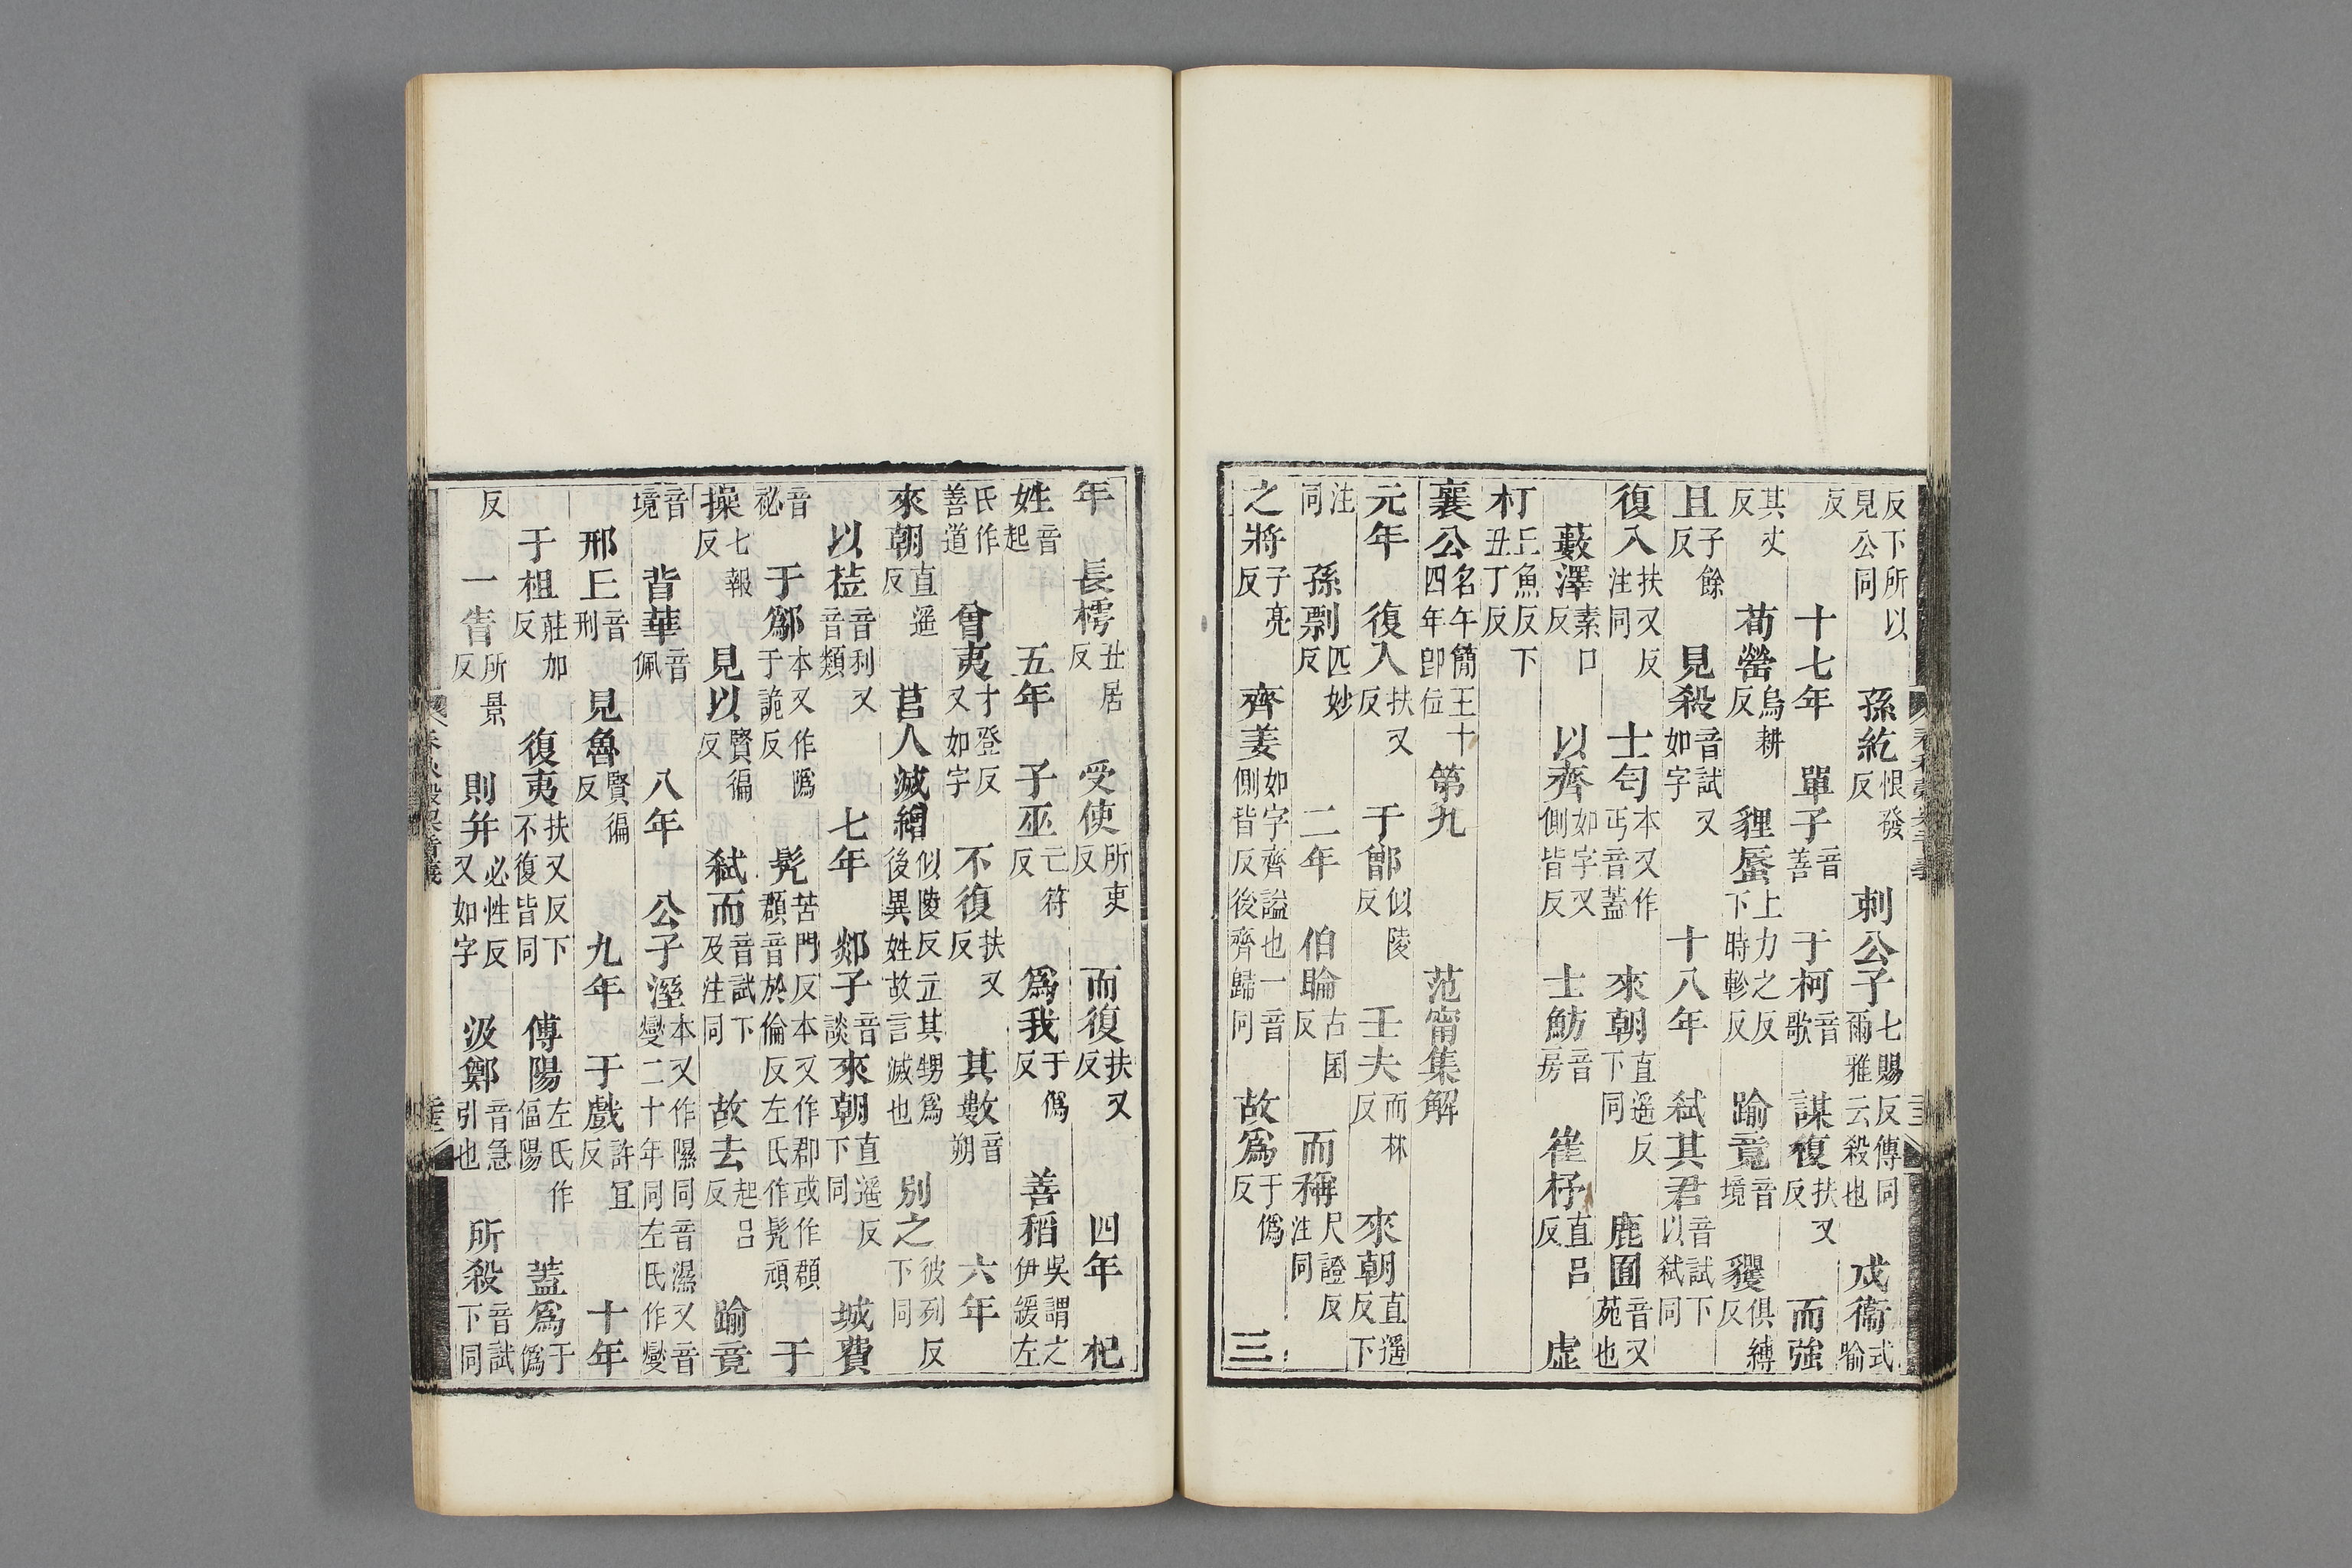 反下所以見公同　孫紇恨發反　刺公子七賜反傳同爾雅云殺也　戍衞式喻
反　十七年　單子音善　于柯音歌　謀復扶又反　而強
其丈反　荀罃烏耕反　貍蜃上力之反下時軫反　踰竟音境　玃俱縛反
且子餘反　見殺音試又如字　十八年　弑其君音試下以弑同
復入扶又反注同　士匄本又作丐音蓋　來朝直遥反下同　鹿囿音又苑也
藪澤素口反　以齊如字又側皆反　士魴音房　崔杼直呂反　虚
朾丘魚反下丑丁反
襄公名午簡王十四年卽位第九　范甯集解
元年　復入扶又反　于鄫似陵反　壬夫而林反　來朝直遥反下
注同　孫剽匹妙反　二年　伯睔古困反　而稱尺證反注同
之將子亮反　齊姜如字齊謚也一音側皆反後齊歸同　故爲于僞反　三
年　長樗丑居反　受使所吏反　而復扶又反　四年　杞
姓音起　五年　子巫亡符反　爲我于僞反　善稻吳謂之伊緩左
氏作善道　曾夷才登反又如字　不復扶又反　其數音朔　六年
來朝直遥反　莒人滅繒似陵反立其甥爲後異姓故言滅也　別之彼列反下同
以莅音利又音類　七年　郯子音談來朝直遥反下同　城費
音祕　于鄬本又作隝于詭反　髠苦門反本又作郡或作頵頵音於倫反左氏作髠頑　于
操七報反　見以賢徧反　弑而音試下及注同　故去起呂反　踰竟
音境　背華音佩　八年　公子溼本又作隰同音濕又音燮二十年同左氏作燮
邢丘音刑　見魯賢徧反　九年　于戲許宜反　十年
于柤莊加反　復夷扶又反下不復皆同　傅陽左氏作偪陽　蓋爲于僞
反　一眚所景反　則并必性反又如字　汲鄭音急引也　所殺音試下同